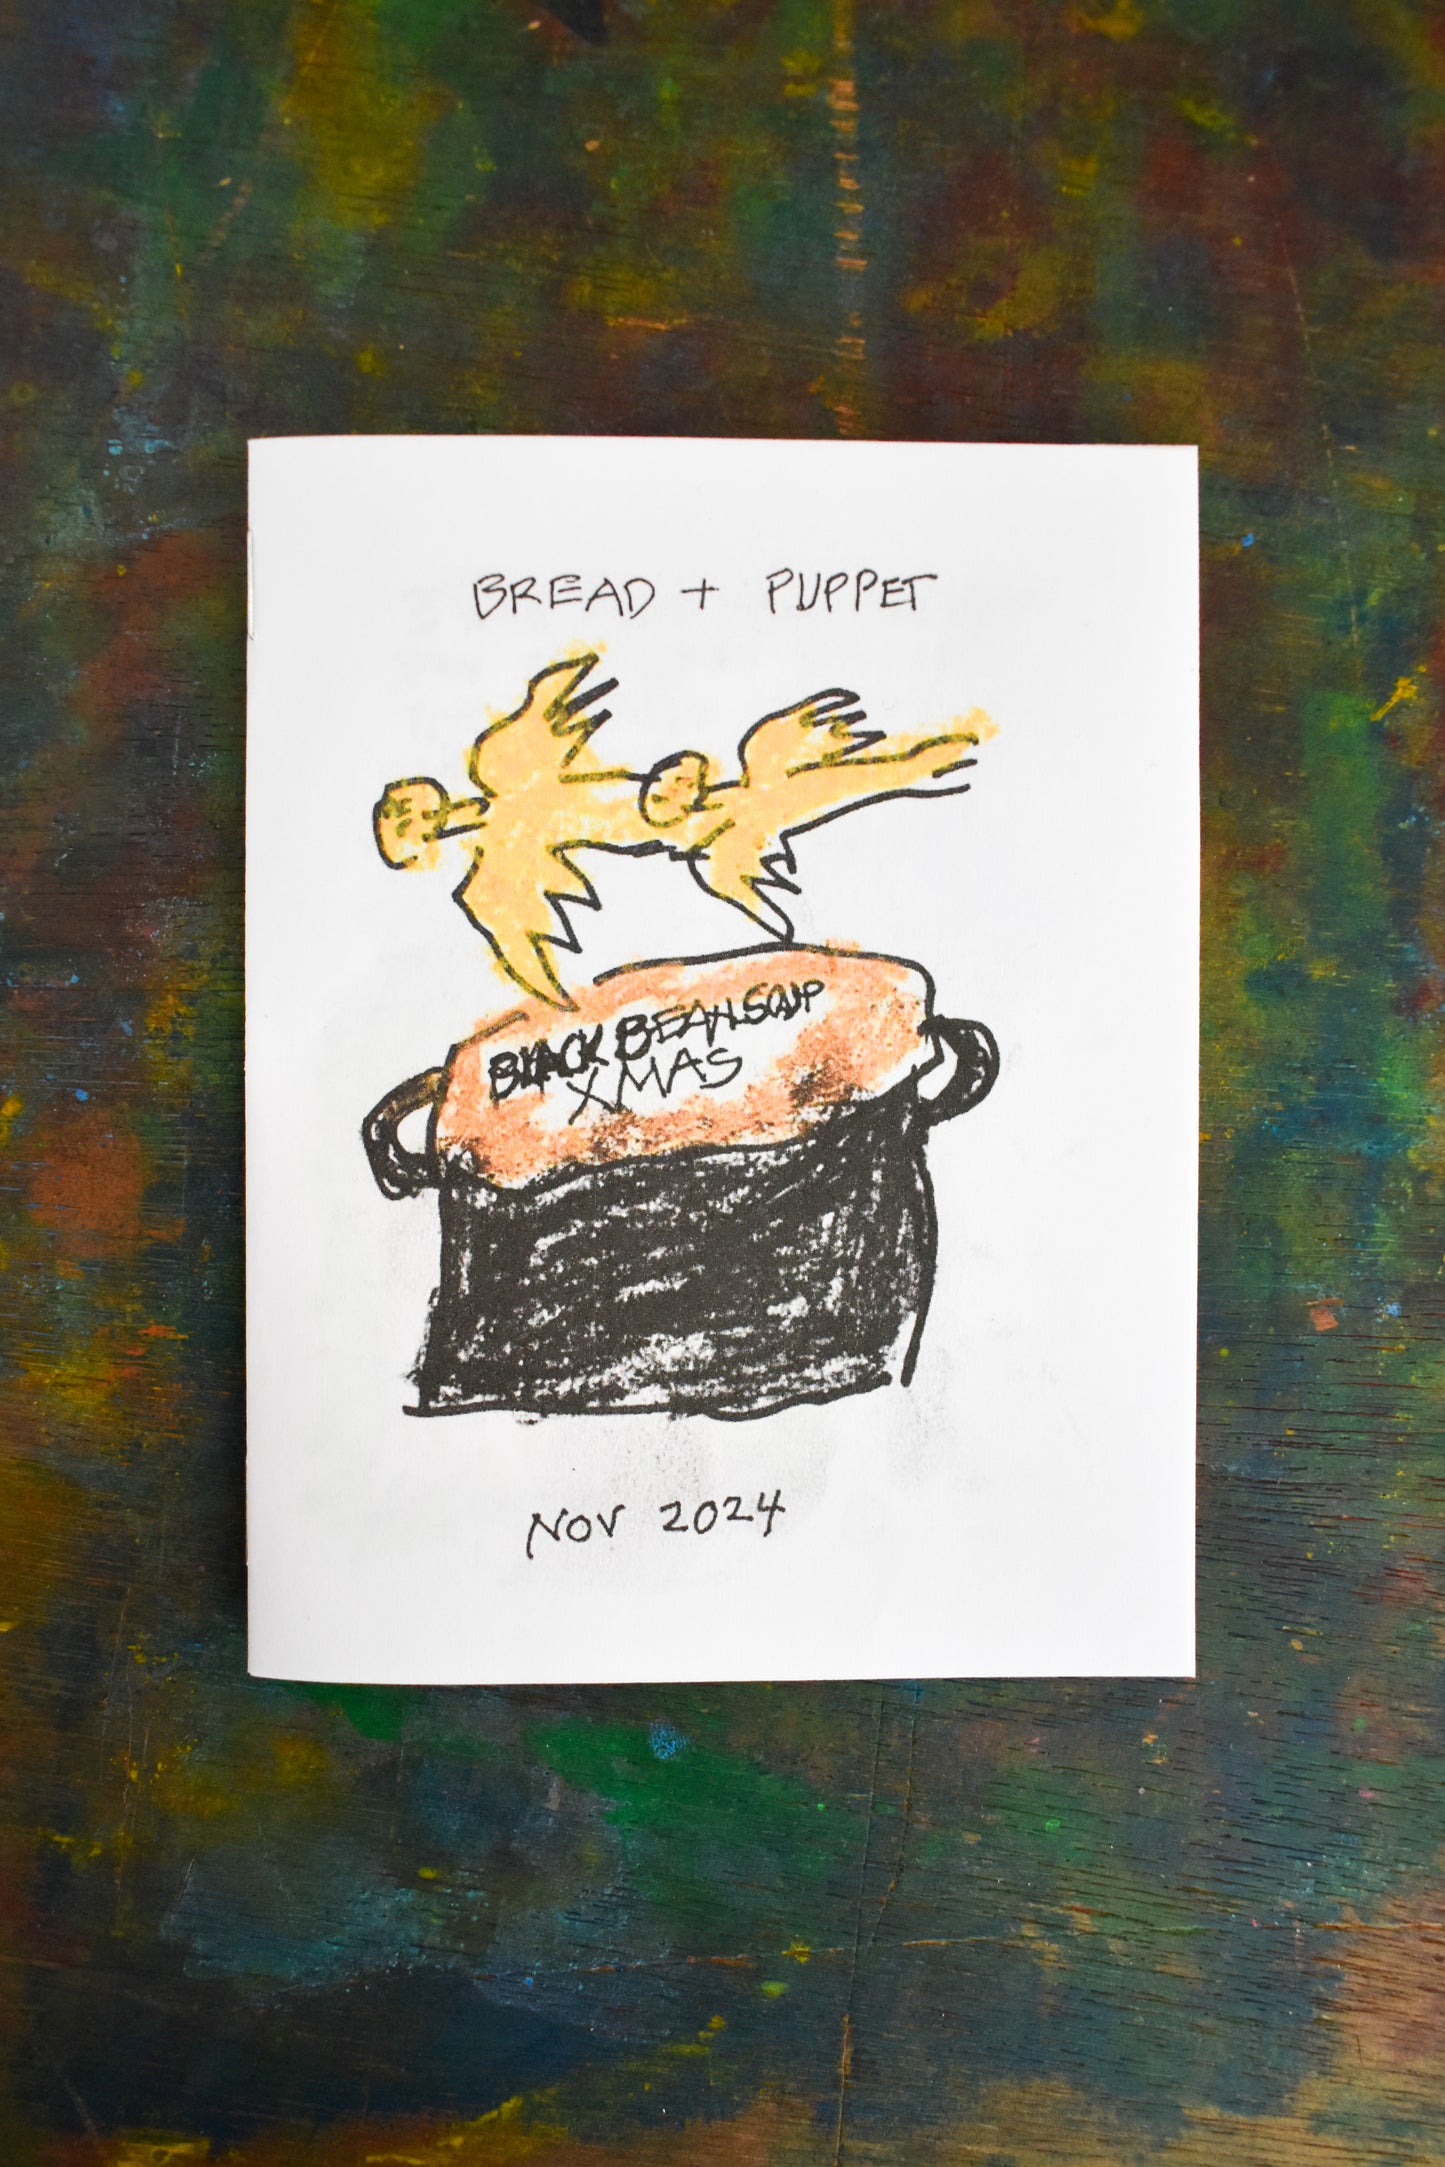 BREAD + PUPPET
BLACK BEAN SOUP
XMAS
NOV 2024